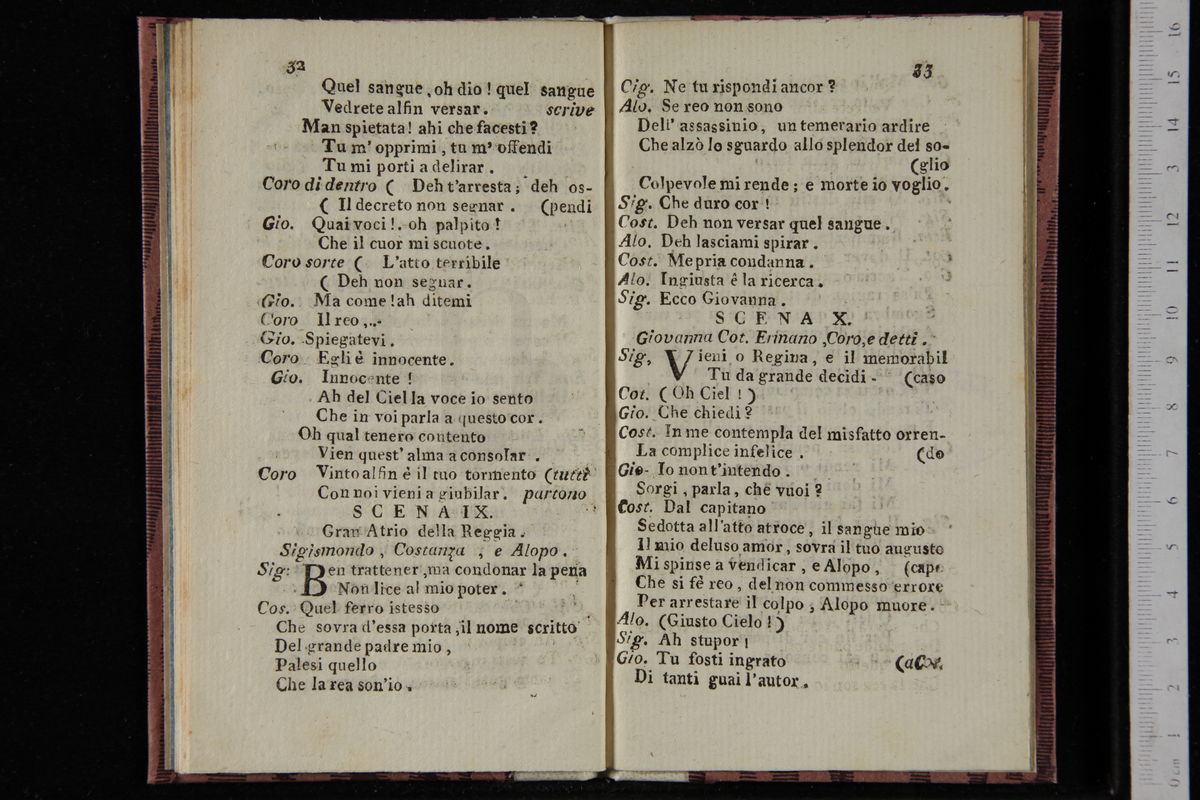 32
Quel sangue, oh dio ! quel sangue
Vedrete alfin versar. scrive
Man spietata! ahi che facesti?
Tu m' opprimi, tu m' offendi
Tu mi porti a delirar.
Coro di dentro ( Deh t'arresta; deh os-
( Il decreto non segnar. (pendi
Gio. Quai voci!. oh palpito!
Che il cuor mi scuote.
Coro sorte ( L'atto terribile
( Deh non segnar.
Gio. Ma come! ah ditemi
Coro Il reo,..-
Gio. Spiegatevi.
Coro Egli è innocente.
Gio. Innocente !
Ah del Ciel la voce io sento
Che in voi parla a questo cor.
Oh qual tenero contento
Vien quest' alma a consolar.
Coro Vinto alfin è il tuo tormento (tutti
Con noi vieni a giubilar. partono
SCENA IX.
Gran Atrio della Reggia.
Sigismondo, Costanza, e Alopo.
Sig: Ben trattener, ma condonar la pena
Non lice al mio poter.
Cos. Quel ferro istesso
Che sovra d'essa porta, il nome scritto
Del grande padre mio,
Palesi quello
Che la rea son'io.
33
Cig. Ne tu rispondi ancor ?
Alo. Se reo non sono
Dell' assassinio, un temerario ardire
Che alzò lo sguardo allo splendor del so-
(glio
Colpevole mi rende; e morte io voglio.
Sig. Che duro cor !
Cost. Deh non versar quel sangue.
Alo. Deh lasciami spirar.
Cost. Me pria condanna.
Alo. Ingiusta ê la ricerca.
Sig. Ecco Giovanna.
SCENA X.
Giovanna Cot. Erinano, Coro, e detti.
Sig, Vieni o Regina, e il memorabil
Tu da grande decidi - (caso
Cot. ( Oh Ciel ! )
Gio. Che chiedi?
Cost. In me contempla del misfatto orren-
La complice infelice. (do
Gio- Io non t'intendo.
Sorgi, parla, che vuoi ?
Cost. Dal capitano
Sedotta all'atto atroce, il sangue mio
Il mio deluso amor, sovra il tuo auguste
Mi spinse a vendicar, e Alopo, (cap
Che si fê reo, del non commesso errore
Per arrestare il colpo, Alopo muore.
Alo. (Giusto Cielo!)
Sig. Ah stupor!
Gio. Tu fosti ingrato (a Cos.
Di tanti guai l'autor.